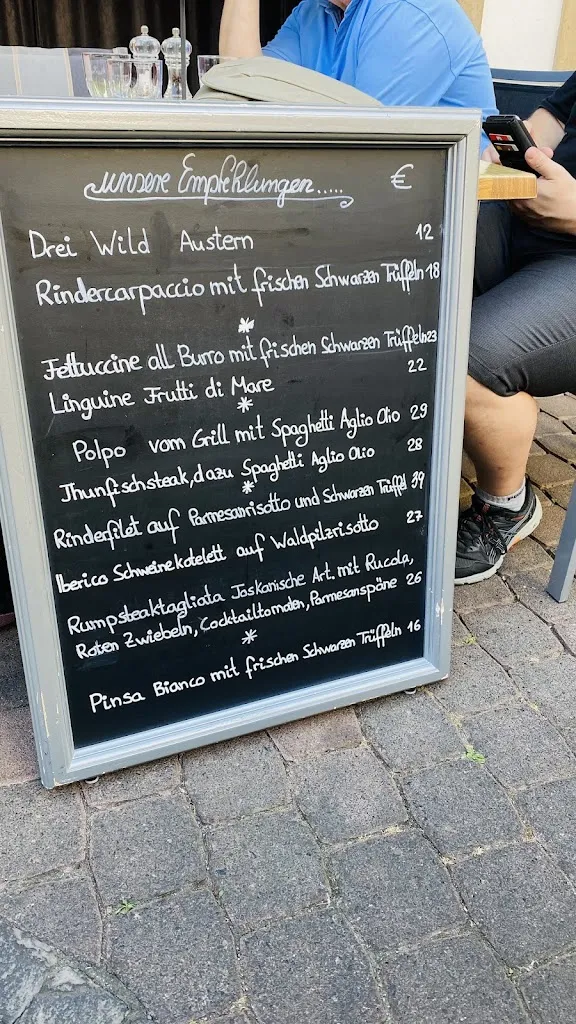 unsere Empfehlungen..... €
Drei Wild Austern 12
Rindercarpaccio mit frischen Schwarzen Trüffeln 18
*
Fettuccine all Burro mit frischen Schwarzen Trüffeln 23
Linguine Frutti di Mare 22
*
Polpo vom Grill mit Spaghetti Aglio Olio 29
Thunfischsteak, dazu Spaghetti Aglio Olio 28
*
Rinderfilet auf Parmesanrisotto und Schwarzen Trüffel 39
Iberico Schweinekotelett auf Waldpilzrisotto 27
Rumpsteaktagliata Toskanische Art. mit Rucola,
Roten Zwiebeln, Cocktailtomaten, Parmesanspäne 26
*
Pinsa Bianco mit frischen Schwarzen Trüffeln 16